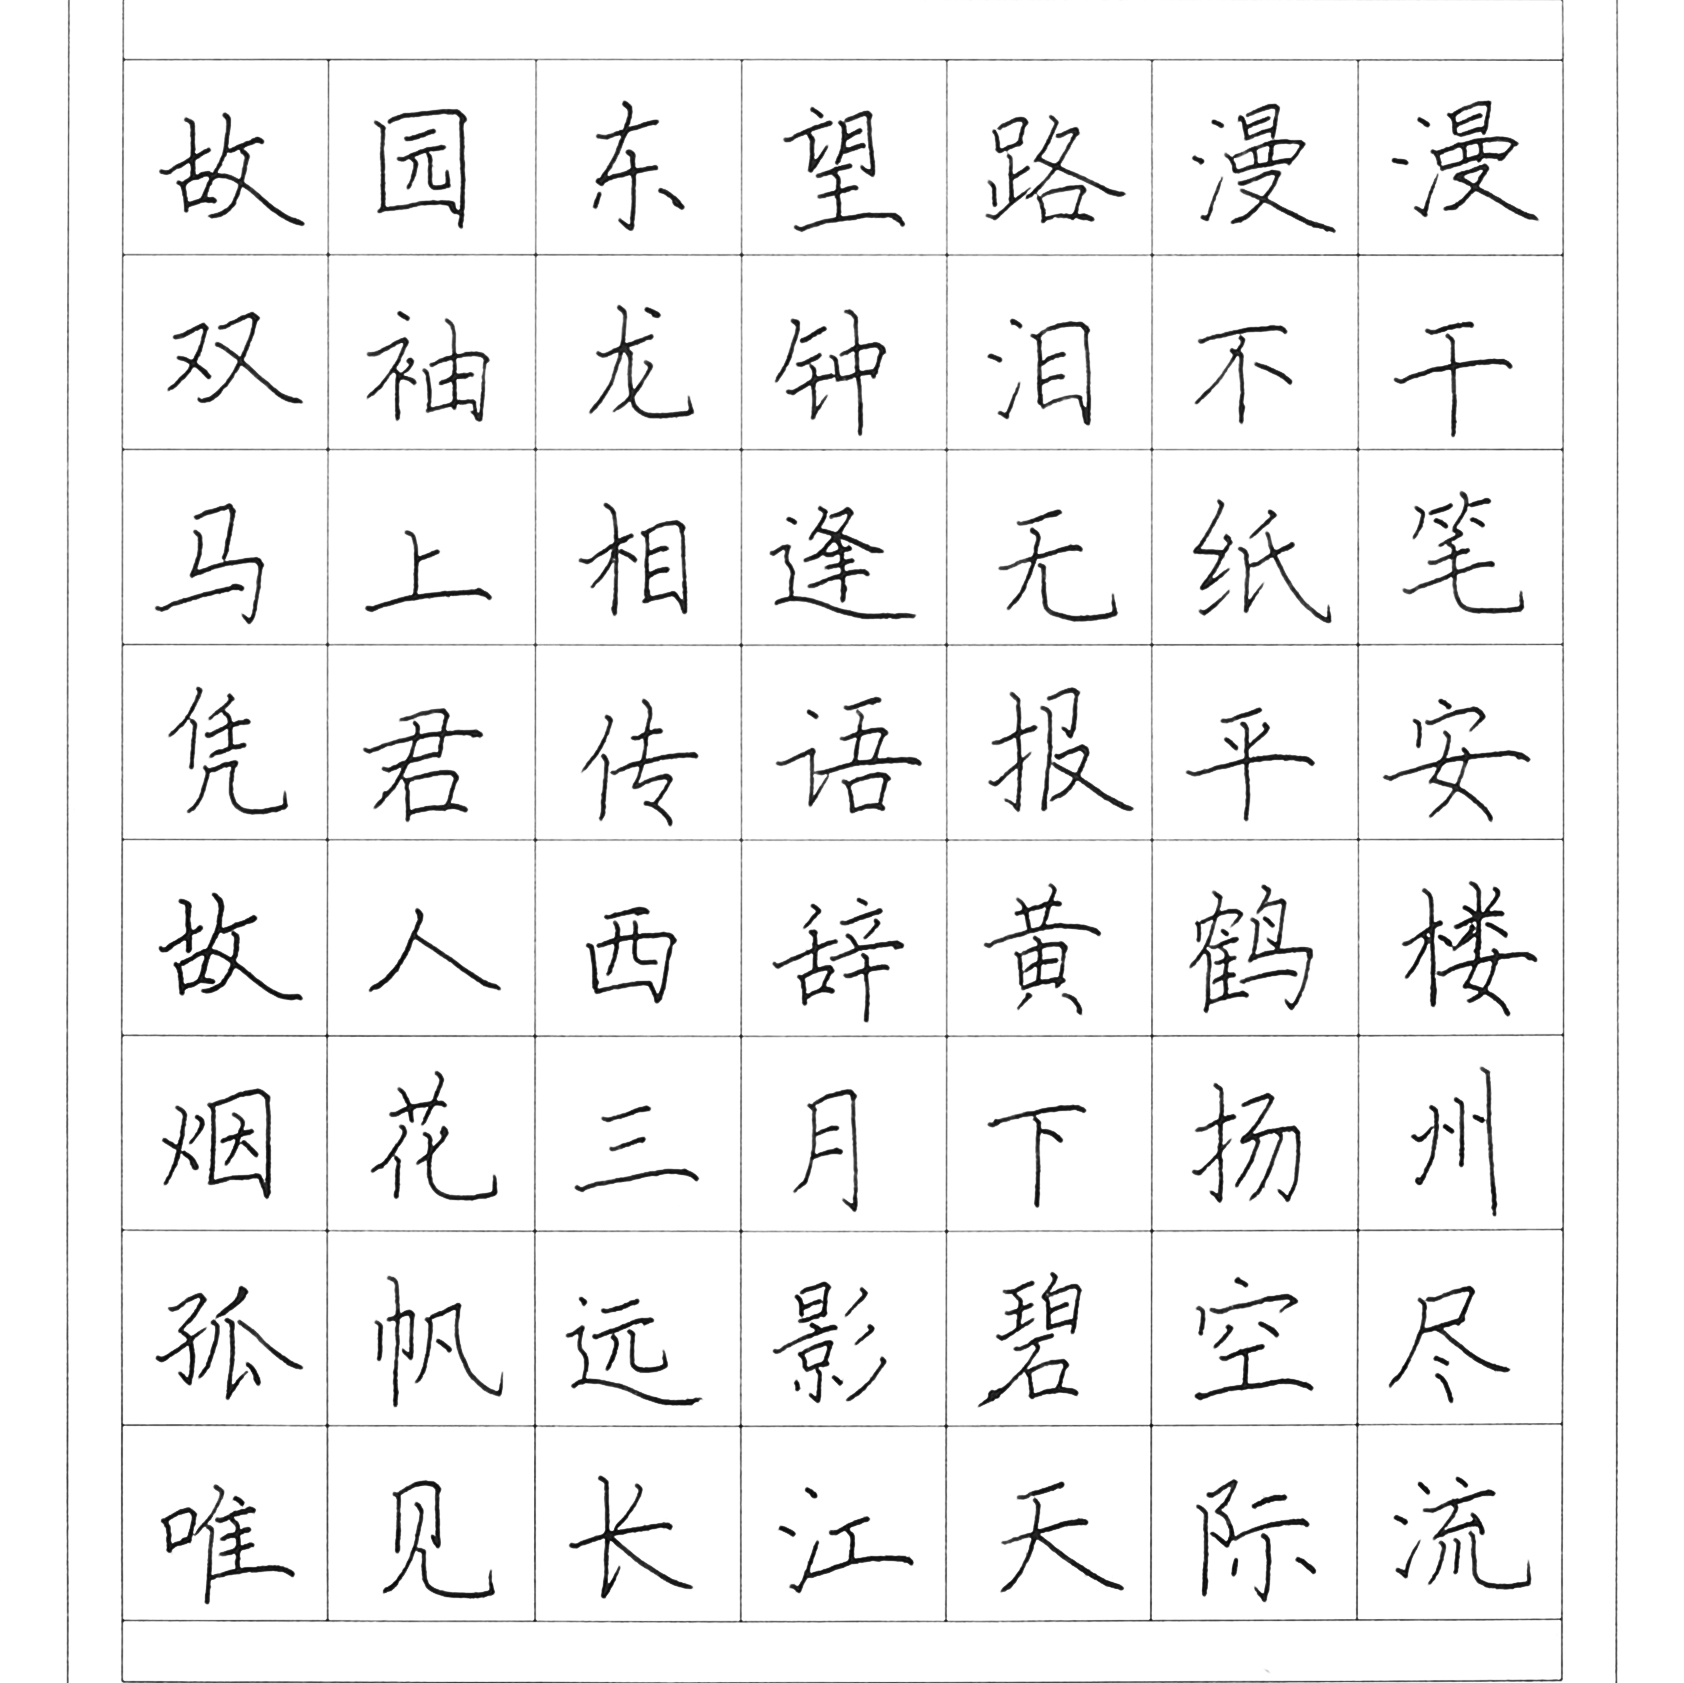 故园东望路漫漫
双袖龙钟泪不干
马上相逢无纸笔
凭君传语报平安
故人西辞黄鹤楼
烟花三月下扬州
孤帆远影碧空尽
唯见长江天际流